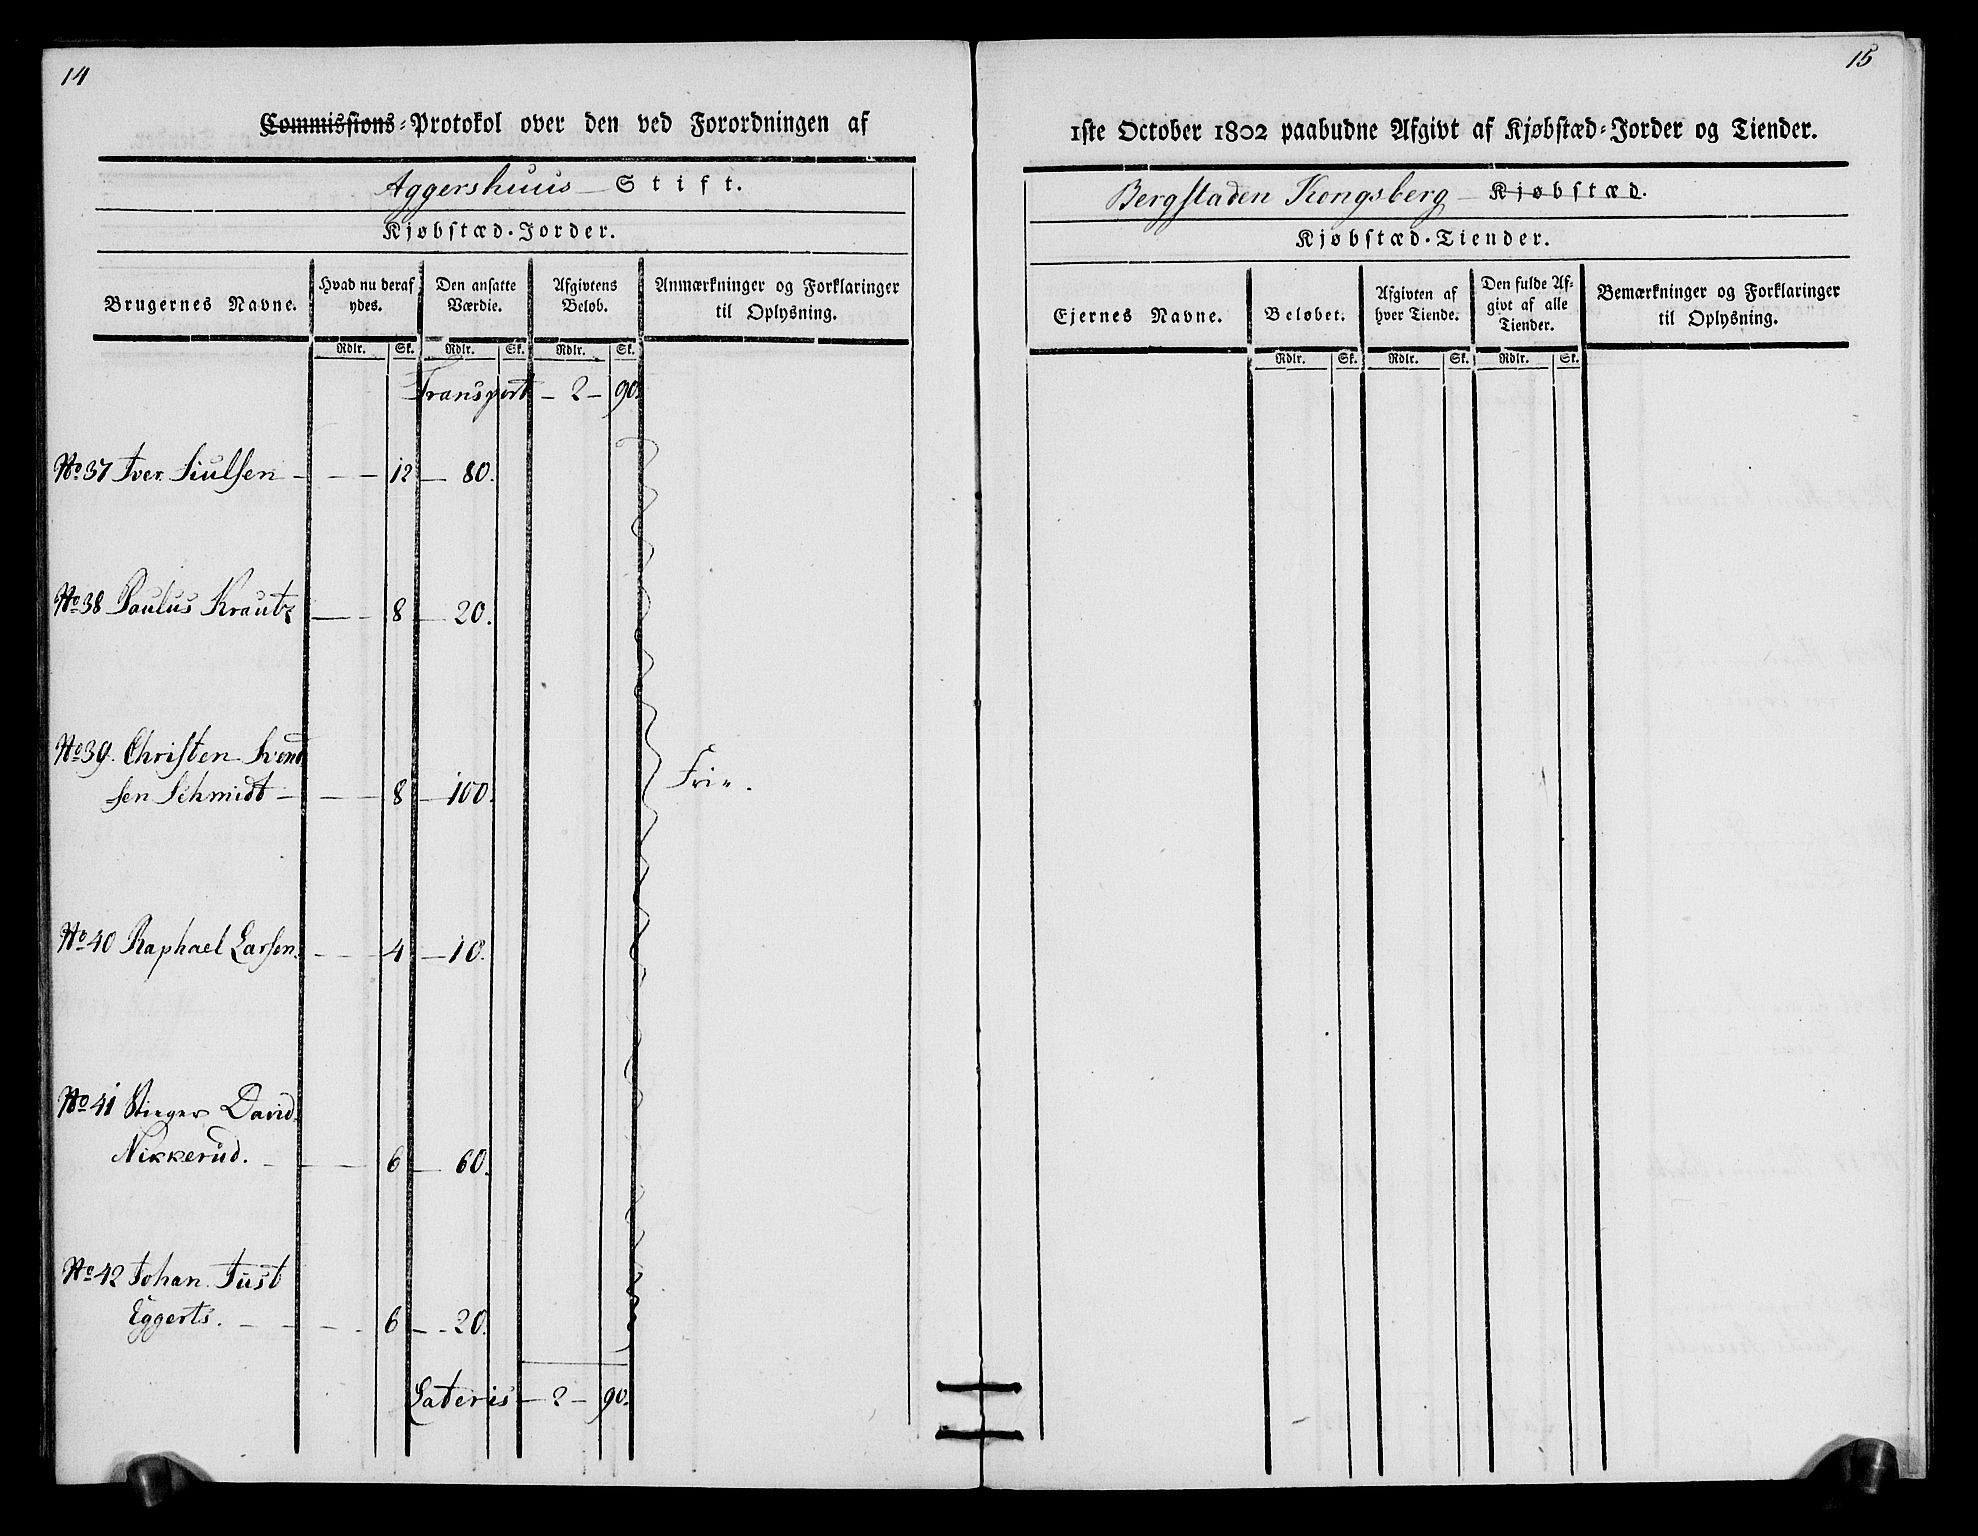 14
Commissions-Protokol over den ved Forordningen af
Aggershuus Stift.
Kjøbstæd-Jorder.
Brugernes Navne. Hvad nu deraf ydes. Den ansatte Værdie. Afgivtens Beløb. Anmærkninger og Forklaringer til Oplysning.
Rdlr. Sk. Rdlr. Sk. Rdlr. Sk.
Transport - 2 - 90.
No 37 Iver Siulsen - - - 12 - 80.
No 38 Paulus Krautz - - 8 - 20.
No 39. Christen Svend
sen Schmidt - - - 8 - 100. Frie.
No 40 Raphael Larsen. - - - 4 - 10.
No 41 Stieger David
Nikkerud. - - - 6 - 60.
No 42 Johan Just
Eggerts. - - - - 6 - - 20.
Lateris - 2 - 90.
15
1ste October 1802 paabudne Afgivt af Kjøbstæd-Jorder og Tiender.
Bergstaden Kongsberg - Kjøbstæd.
Kjøbstæd-Tiender.
Ejernes Navne. Beløbet. Afgivten af hver Tiende. Den fulde Afgivt af alle Tiender. Bemærkninger og Forklaringer til Oplysning.
Rdlr. Sk. Rdlr. Sk. Rdlr. Sk.